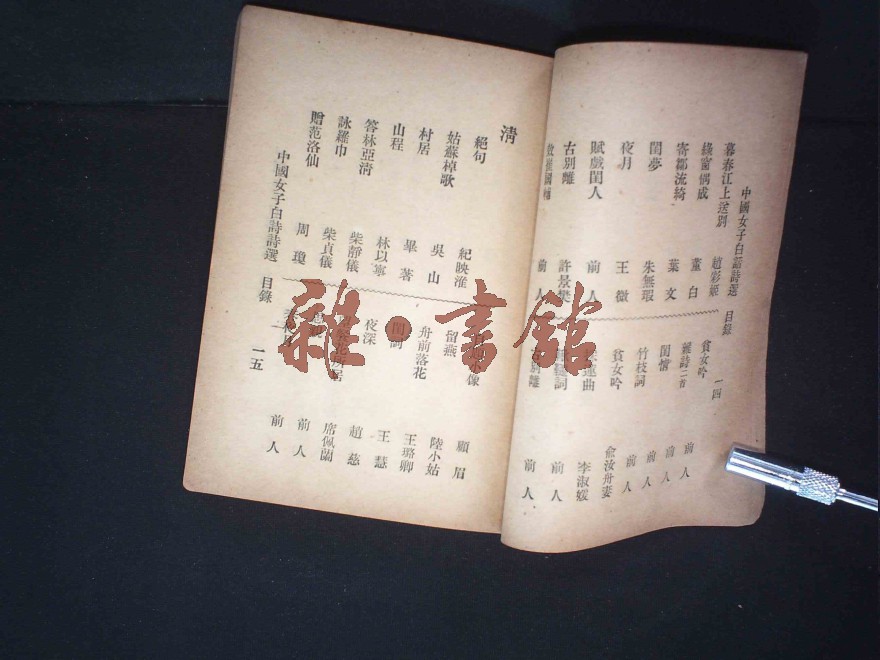 中國女子白話詩選 目錄 一四
暮春江上送別 趙彩姬
綠窗偶成 董白
寄鄒流綺 葉文
閨夢 朱無瑕
夜月 王微
賦戲閨人 前人
古別離 許景樊
效崔國輔 前人
貧女吟
雜詩二首 前人
閨情 前人
竹枝詞 前人
貧女吟 俞汝舟妻
李淑媛
前人
前人
清
絕句 紀映淮
姑蘇棹歌 吳山
村居 畢著
山程 林以寧
答林亞清 柴靜儀
詠羅巾 柴貞儀
贈范洛仙 周瓊
顧眉
留燕 陸小姑
舟前落花 王璐卿
閨詞 王慧
夜深 趙慈
席佩蘭
前人
前人
中國女子白話詩選 目錄 一五
雜·書館